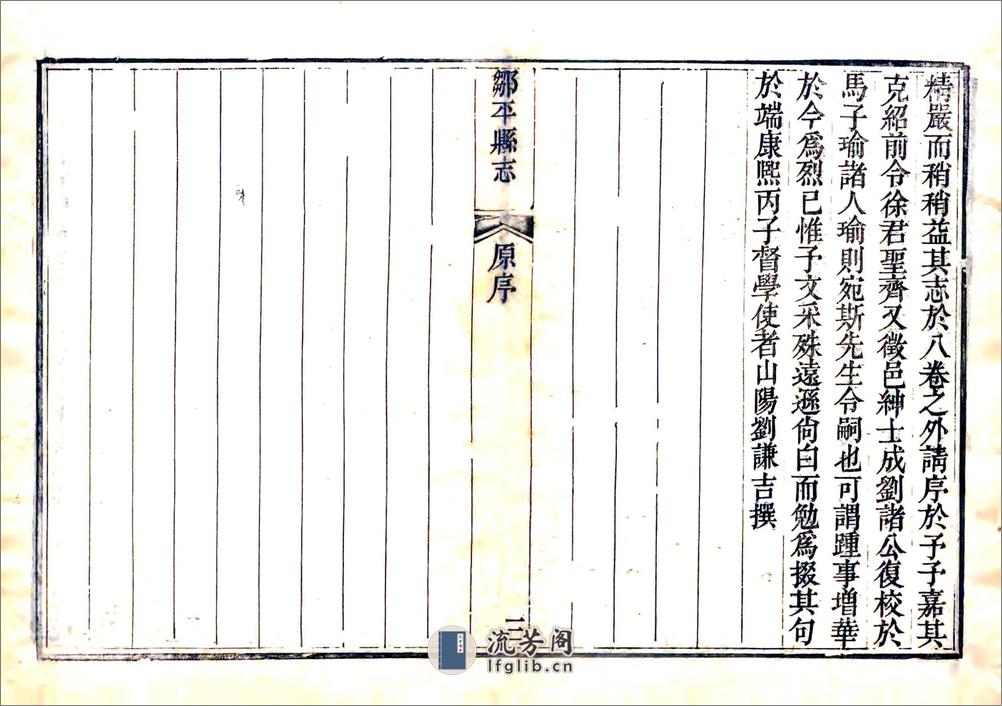 精嚴而稍稍益其志於八卷之外請序於予予嘉其
克紹前令徐君聖齊又徵邑紳士成劉諸公復校於
馬子瑜諸人瑜則宛斯先生令嗣也可謂踵事增華
於今爲烈已惟予文采殊遠遜尙白而勉爲掇其句
於端康熙丙子督學使者山陽劉謙吉撰
鄒平縣志
原序
流芳阁
lfglib.cn